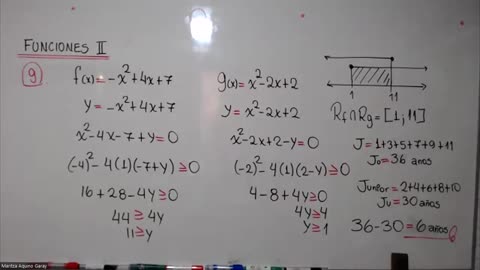 FUNCIONES II
9
f(x) = -x²+4x+7
y = -x²+4x+7
x²-4x-7+y=0
(-4)²-4(1)(-7+y)≥0
16+28-4y≥0
44≥4y
11≥y
g(x)=x²-2x+2
y=x²-2x+2
x²-2x+2-y=0
(-2)²-4(1)(2-y)≥0
4-8+4y≥0
4y≥4
y≥1
1 11
Rf∩Rg=[1;11]
J=1+3+5+7+9+11
Jo=36 años
Junior=2+4+6+8+10
Ju=30 años
36-30=6 años
Maritza Aquino Garay